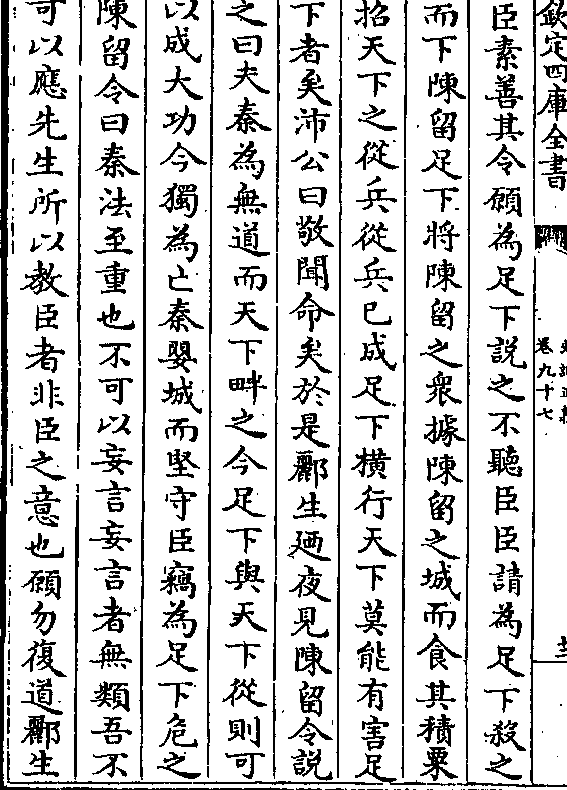 欽定四庫全書
卷九十七
臣素善其令願為足下說之不聽臣臣請為足下殺之
而下陳留足下將陳留之衆據陳留之城而食其積粟
招天下之從兵從兵已成足下橫行天下莫能有害足
下者矣沛公曰敬聞命矣於是酈生廼夜見陳留令說
之曰夫秦為無道而天下畔之今足下與天下從則可
以成大功今獨為亡秦嬰城而堅守臣竊為足下危之
陳留令曰秦法至重也不可以妄言妄言者無類吾不
可以應先生所以教臣者非臣之意也願勿復道酈生